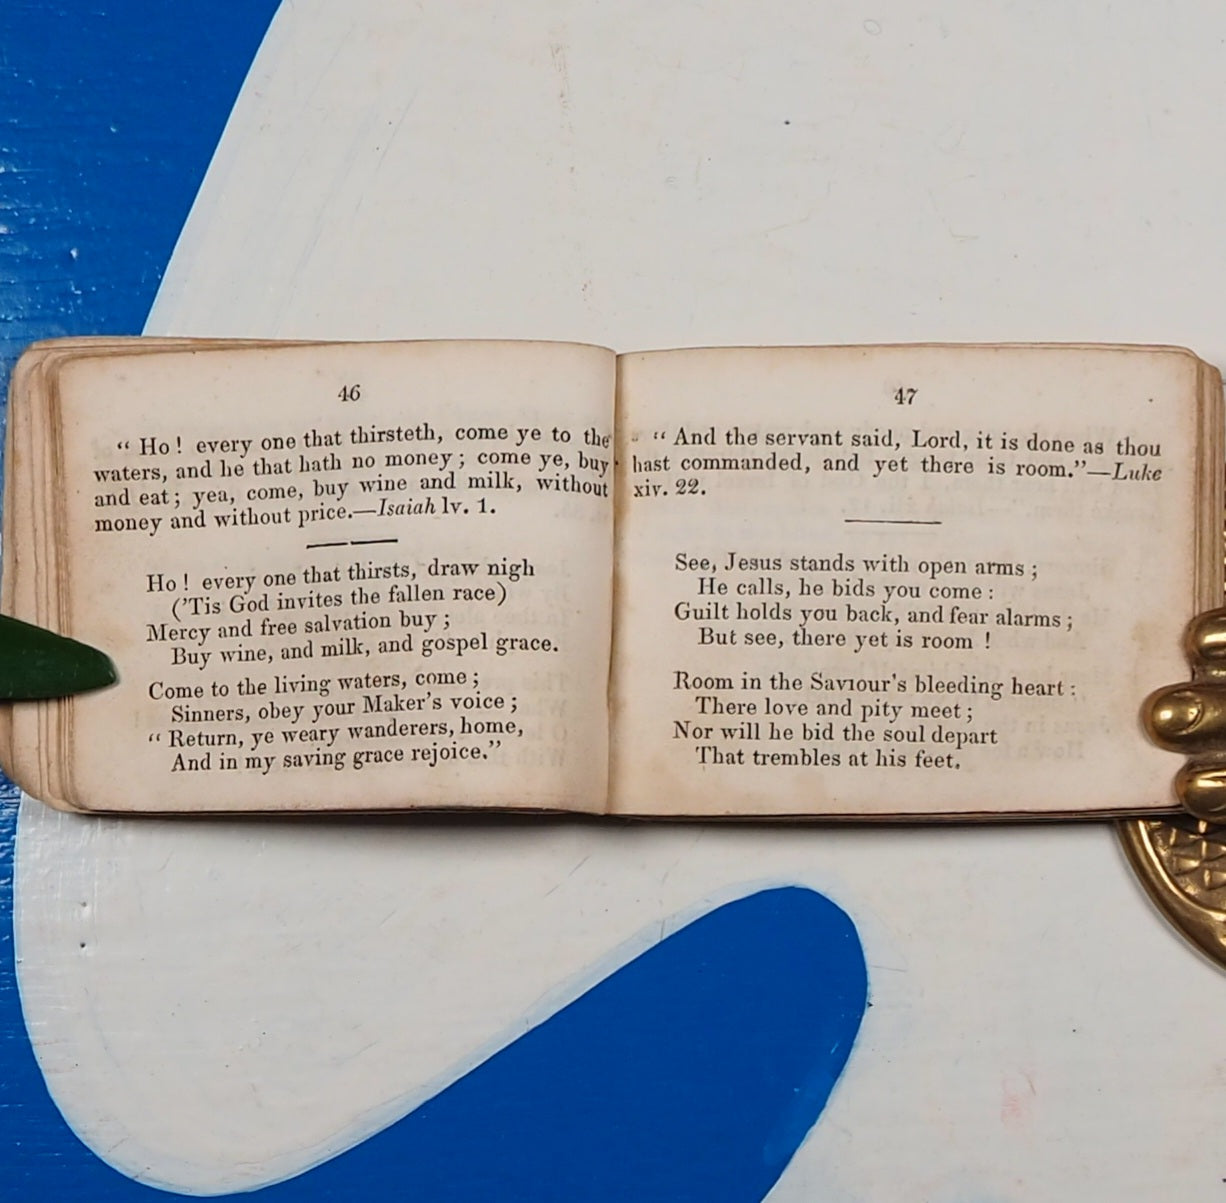 46
“ Ho ! every one that thirsteth, come ye to the
waters, and he that hath no money ; come ye, buy
and eat ; yea, come, buy wine and milk, without
money and without price.—Isaiah lv. 1.
Ho ! every one that thirsts, draw nigh
(’Tis God invites the fallen race)
Mercy and free salvation buy ;
Buy wine, and milk, and gospel grace.
Come to the living waters, come ;
Sinners, obey your Maker’s voice ;
“ Return, ye weary wanderers, home,
And in my saving grace rejoice.”
47
“ And the servant said, Lord, it is done as thou
hast commanded, and yet there is room.”—Luke
xiv. 22.
See, Jesus stands with open arms ;
He calls, he bids you come :
Guilt holds you back, and fear alarms ;
But see, there yet is room !
Room in the Saviour’s bleeding heart :
There love and pity meet ;
Nor will he bid the soul depart
That trembles at his feet.